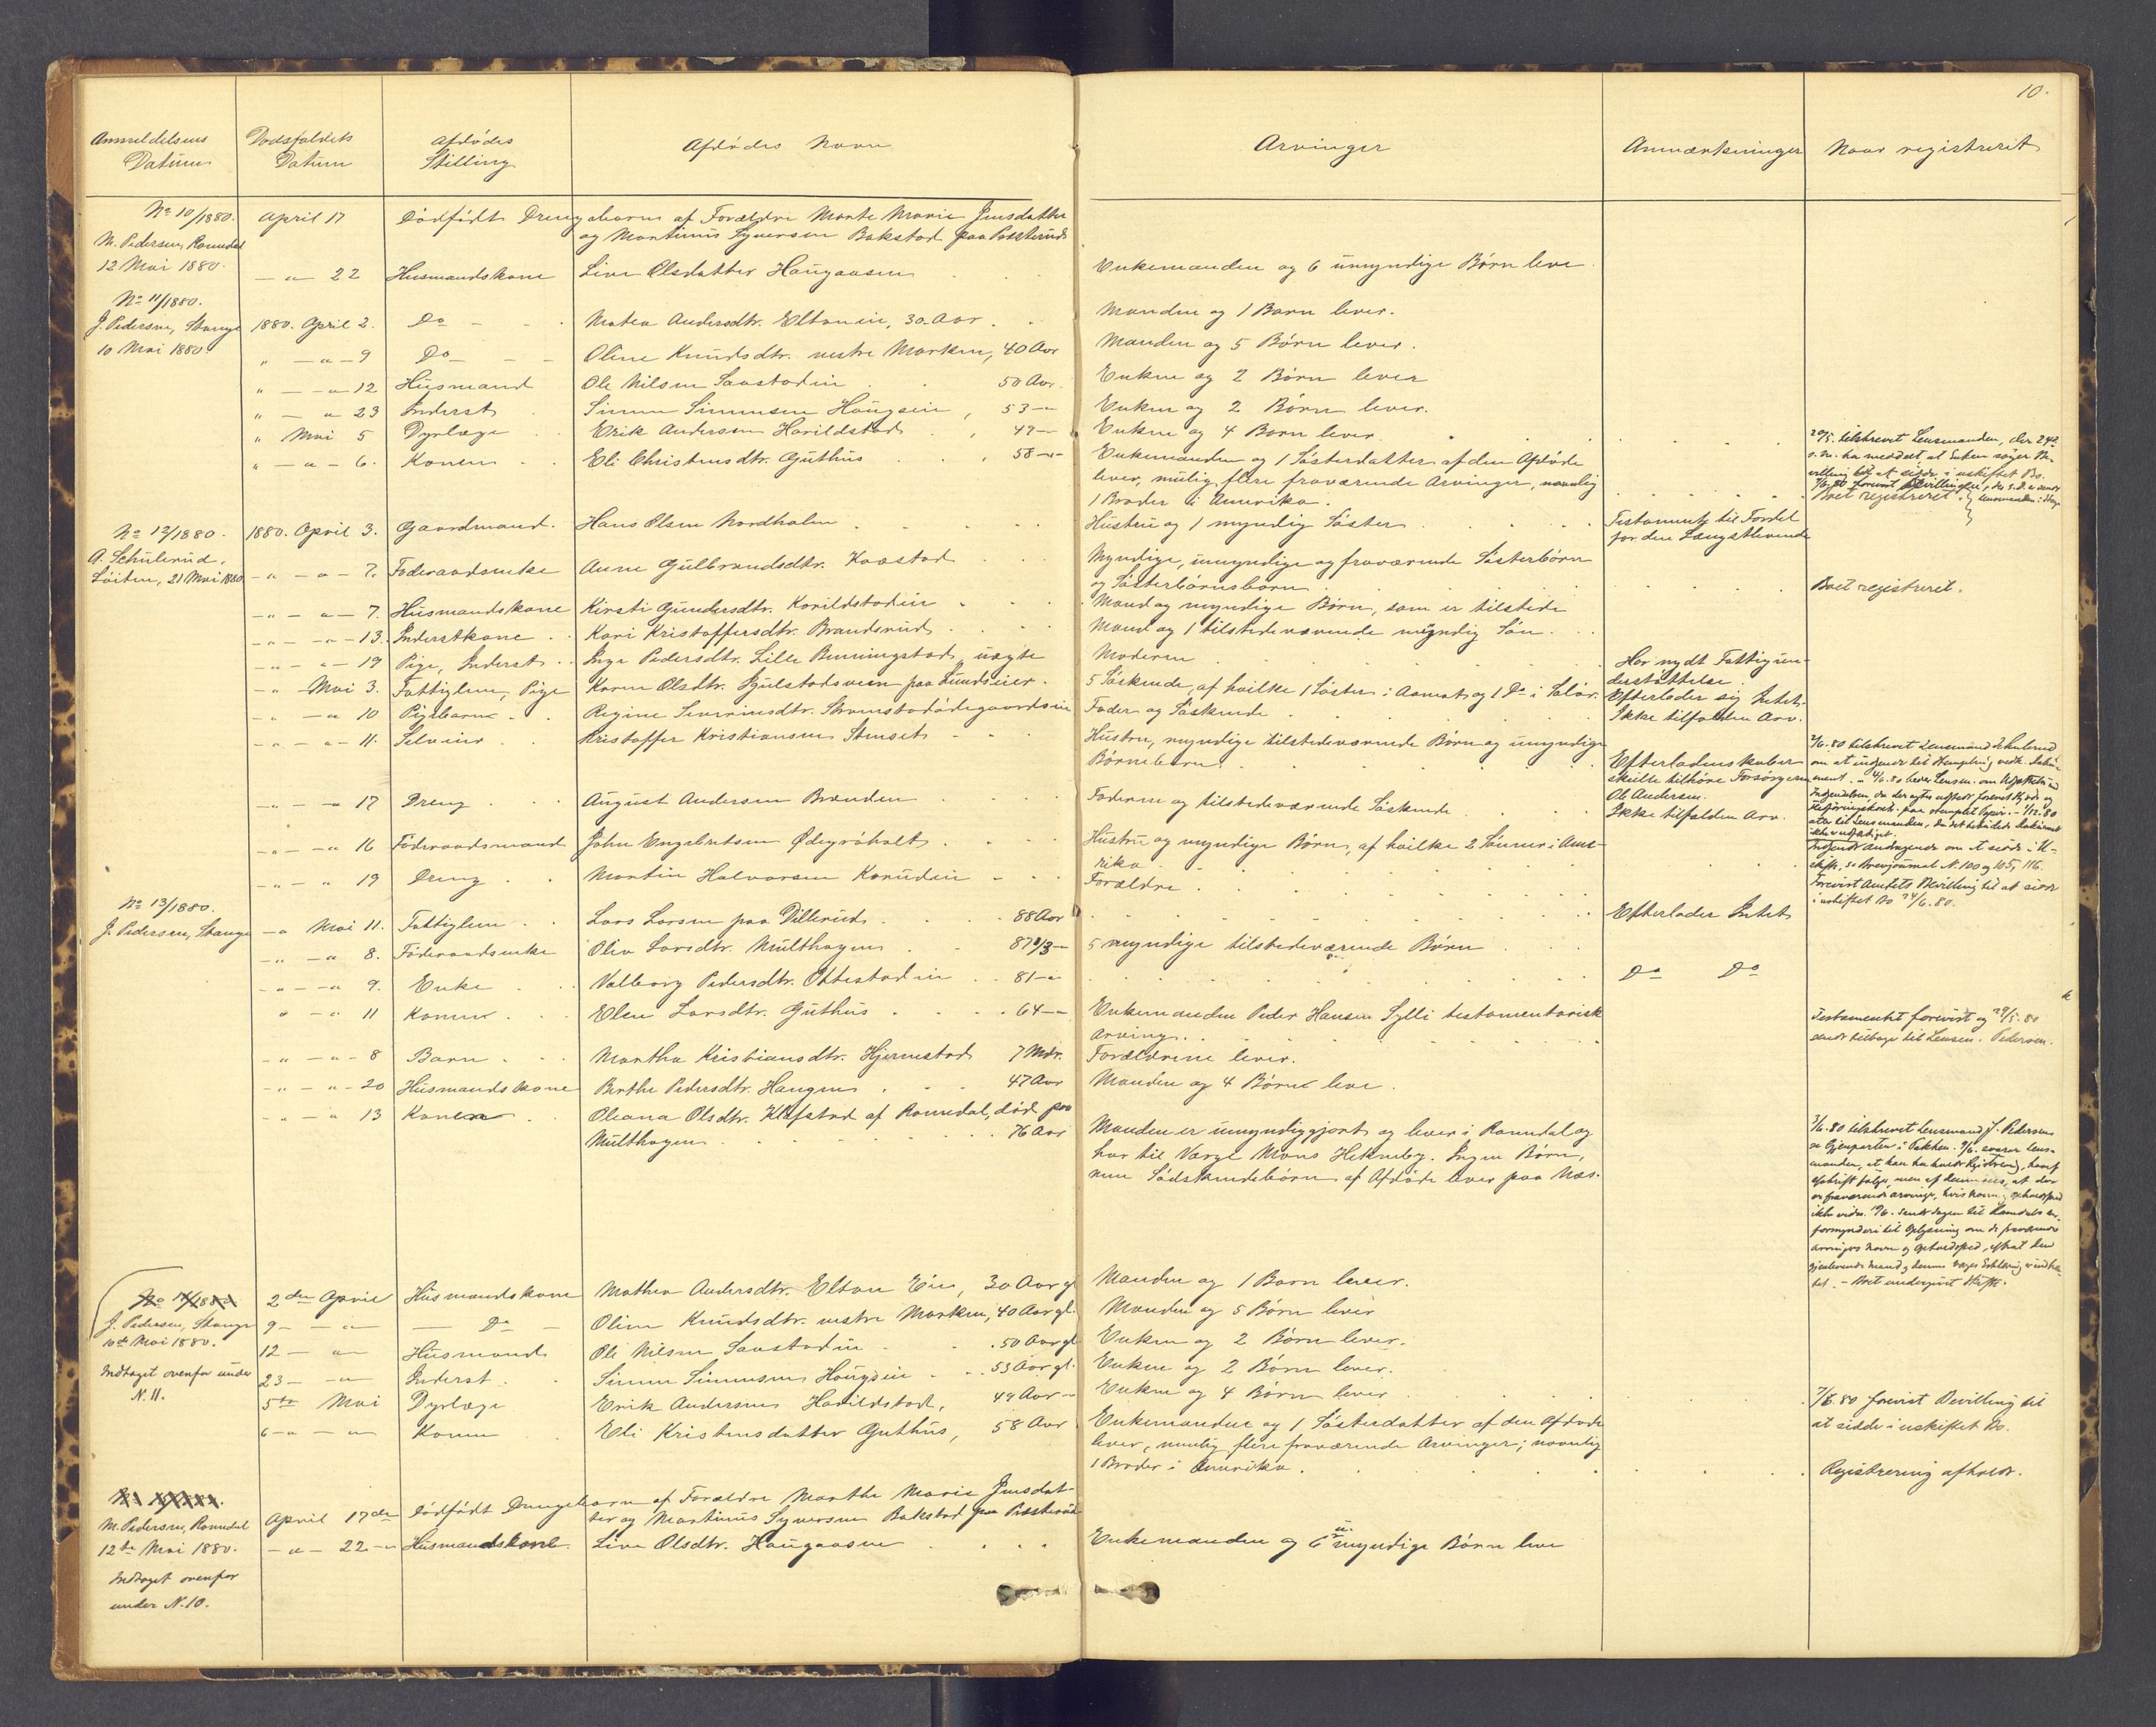 10.
Anmeldelsens Datum
Dødsfaldets Datum
Afdødes Stilling
Afdødes Navn
Arvinger
Anmærkninger
Naar registreret
No 10/1880. April 17 Dødfødt Drengebarn af Forældre Marte Marie Jensdatter
M. Pedersen, Romedal og Martinus Syversen Bakstad paa Præsterud
12 Mai 1880. — " — 22 Husmandskone Live Olsdatter Haugaasen Enkemanden og 6 umyndige Børn leve.
No 11/1880.
J. Pedersen, Stange 1880. April 2. Do Matea Andersdtr. Eltoneie, 30 Aar. Manden og 1 Barn lever.
10 Mai 1880. " — " — 9 Do Oline Knudsdtr. vestre Marken, 40 Aar Manden og 5 Børn lever.
" — " 12 Husmand Ole Nilsen Saastadeie 50 Aar. Enken og 2 Børn lever
" — " 23 Inderst Simen Simensen Haugseie, 53 — " Enken og 2 Børn lever.
" Mai 5 Dyrlæge Erik Andersen Harildstad, 49 — Enken og 4 Børn lever.
" — " — 6. Konen Eli Christensdtr. Guthus, 58 — " Enkemanden og 1 Søsterdatter af den Afdøde
lever, mulig flere fraværende Arvinger, navnlig
1 Broder i Amerika.
20/5. tilskrevet Lensmanden, der 24de
s. M. har meddelt, at Enken søger Be-
villing til at sidde i uskiftet Bo.
7/6. 80 forevist Bevillingen, der s. D. er sendt
Boet registreret. Lensmanden i Stange
No 12/1880. 1880. April 3. Gaardmand. Hans Olsen Nordholm Hustru og 1 myndig Søster Testamente til Fordel
for den Længstlevende
A. Schulerud,
Løiten, 21 Mai 1880 — " — " — 7. Føderaadsenke Anne Gulbrandsdtr. Kvæstad Myndige, umyndige og fraværende Søsterbørn
og Søsterbørnsbørn Boet registreret.
— " — " — 7. Husmandskone Kirsti Gundersdtr. Korildstadeie Mand og myndige Børn, som er tilstede
— " — " — 13. Inderstkone Kari Kristoffersdtr. Brandsrud Mand og 1 tilstedeværende myndig Søn.
— " — " — 19 Pige, Inderst Inge Pedersdtr. Lille Benningstad, uægte Moderen Har nydt Fattigun-
derstøttelse.
— " Mai 3. Fattiglem, Pige Karen Olsdtr. Gjulstadsveen paa Lundseier. 5 Søskende, af hvilke 1 Søster i Aamot og 1 Do i Solør. Efterlader sig Intet.
— " — " 10 Pigebarn Regine Severinsdtr. Stromstadødegaardseie Fader og Søskende Ikke tilfalden Arv.
— " — " — 11. Selveier Kristoffer Kristiansen Stenset Hustru, myndige tilstedeværende Børn og umyndige
Børnebørn
— " — " 17 Dreng August Andersen Brænden Faderen og tilstedeværende Søskende
Efterladenskaber
skulle tilhøre Forsørgeren
Ole Andersen.
Ikke tilfalden Arv.
— " — " 16 Føderaadsmand John Engebretsen Ødegrøholt Hustru og myndige Børn, af hvilke 2 Sønner i Ame-
rika
— " — " 19 Dreng Martin Halvorsen Korudeie Forældre
2/6. 80 tilskrevet Lensmand Schulerud
om at indsende til Stempling vedk. Doku-
ment.
Ansøgende om at sidde i U-
skifte, se Brevjournal N. 100 og 105, 116.
Forevist Amtets Bevilling til at sidde
i uskiftet Bo 24/6. 80.
No 13/1880.
J. Pedersen, Stange — " Mai 11. Fattiglem Lars Larsen paa Dillerud 88 Aar Efterlader Intet
— " — " 8. Føderaadsenke Olea Larsdtr. Multhagen 87 1/3 — " 5 myndige tilstedeværende Børn
— " — " 9. Enke Valborg Pedersdtr. Ottestadeie 81 — " Do Do
" — " 11 Konen Elen Larsdtr. Guthus 64 — " Enkemanden Peder Hansen Sylli testamentarisk
Arving. Testamentet forevist og 29/5. 80
sendt tilbage til Lensm. Pedersen.
— " — " — 8 Barn Martha Kristiansdtr. Hjermstad 7 Mdr. Forældrene lever.
— " — " — 20 Husmandskone Berthe Pedersdtr. Haugen 47 Aar Manden og 4 Børn leve.
— " — " 13 Konen Oleana Olsdtr. Klæfstad af Romedal, død paa
Multhagen 76 Aar Manden er umyndiggjort og lever i Romedal og
har til Værge Mons Hekneby. Ingen Børn,
men Sødskendebørn af Afdøde lever paa Næs.
3/6. 80 tilskrevet Lensmand J. Pedersen
se Gjenparten i Pakken. 9/6. svarer Lens-
manden, at han har holdt Registrering, hvoraf
Afskrift følger, men af denne sees, at der
er fraværende Arvinger, hvis Navn og Opholdssted
ikke vides. 10/6. sendt Sagen til Romedals Over-
formynderi til Oplysning om de fraværende
Arvingers Navn og Opholdssted, efterat den
gjenlevende Mand og dennes Værges Erklæring er indhen-
tet. — Boet undergivet Skifte.
2den April Husmandskone Mathea Andersdtr. Elton Eie, 30 Aar gl Manden og 1 Barn lever.
J. Pedersen, Stange 9 — " — Do — Oline Knudsdtr. vestre Marken, 40 Aar gl. Manden og 5 Børn lever
10de Mai 1880. 12 — " Husmand Ole Nilsen Saastadeie 50 Aar gl Enken og 2 Børn lever.
Indtaget ovenfor under 23 — " Inderst Simen Simensen Haugseie 53 Aar gl. Enken og 2 Børn lever.
N. 11. 5te Mai Dyrlæge Erik Andersen Harildstad, 49 Aar — " Enken og 4 Børn lever
6 — " — " Konen Eli Kristensdatter Guthus, 58 Aar Enkemanden og 1 Søsterdatter af den Afdøde
lever, mulig flere fraværende Arvinger; navnlig
1 Broder i Amerika.
7/6. 80 forevist Bevilling til
at sidde i uskiftet Bo.
Registrering afholdt.
M. Pedersen, Romedal April 17de Dødfødt Drengebarn af Forældre Marthe Marie Jensdat-
ter og Martinus Syversen Bakstad paa Præsterud
12te Mai 1880. — " — 22 — " Husmandskone Live Olsdtr. Haugaasen Enkemanden og 6 umyndige Børn leve
Indtaget ovenfor
under N. 10.